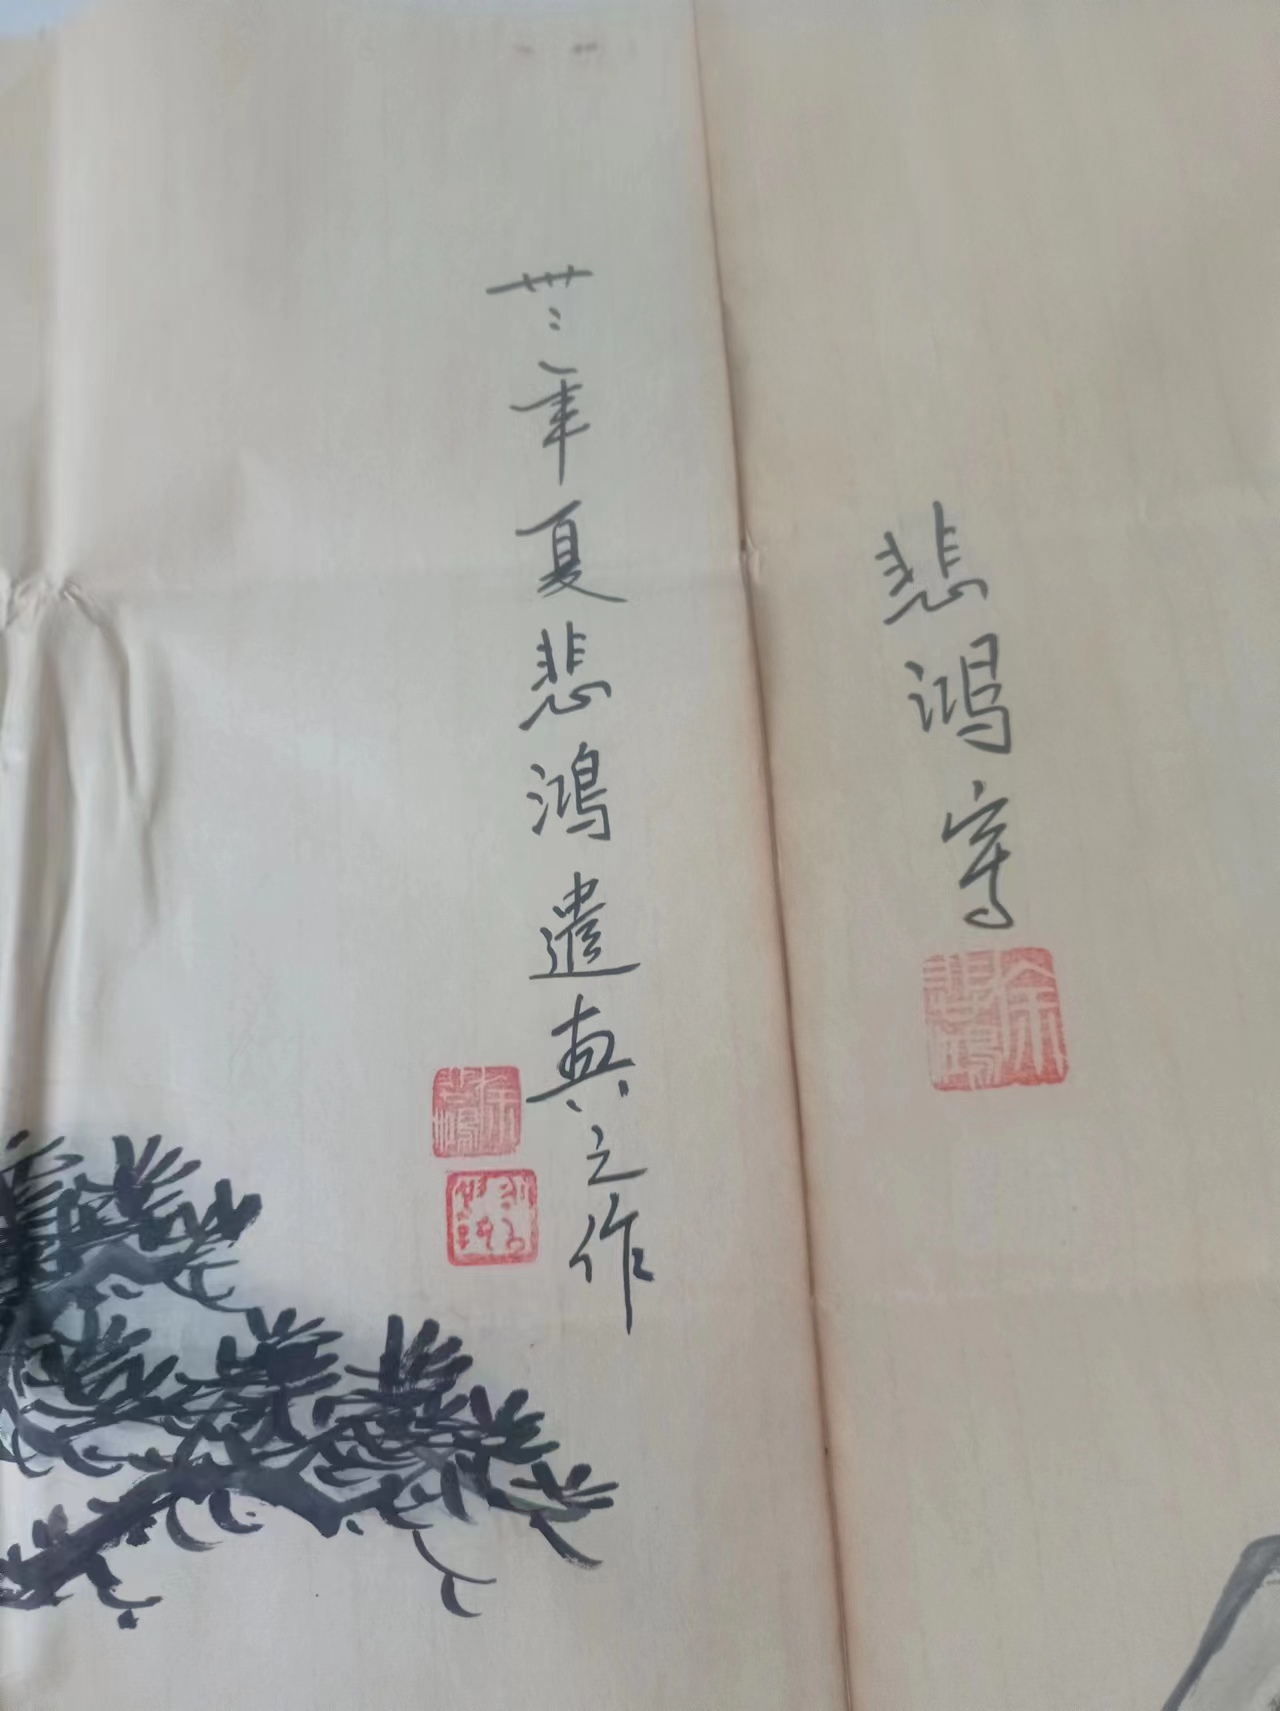 悲鴻寫
徐悲鴻
卅二年夏悲鴻遣興之作
徐悲鴻